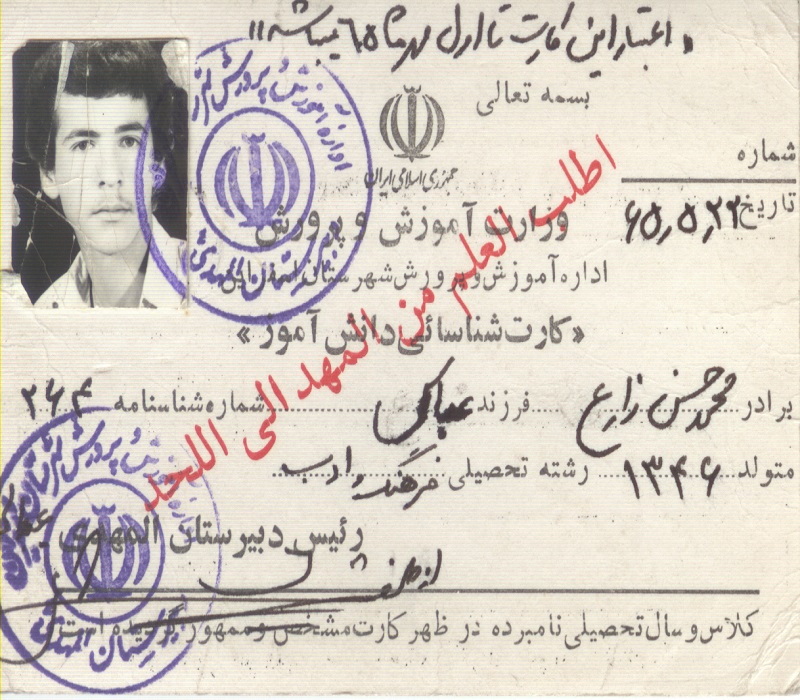 « اعتبار این کارت تا اول مهرماه ۶۵ میباشد »
بسمه تعالی
جمهوری اسلامی ایران
شماره
تاریخ ۶۵٫۵٫۲۲
وزارت آموزش و پرورش
اداره آموزش و پرورش شهرستان
« کارت شناسائی دانش آموز »
برادر محمد حسن زارع فرزند عباس شماره شناسنامه ۲۶۴
متولد ۱۳۴۶ رشته تحصیلی فرهنگ و ادب
اطلب العلم من المهد الی اللحد
رئیس دبیرستان المهدی
از طرف
کلاس و سال تحصیلی نامبرده در ظهر کارت مشخص و ممهور گردیده است
اداره آموزش و پرورش
دبیرستان المهدی
آموزش و پرورش
دبیرستان المهدی